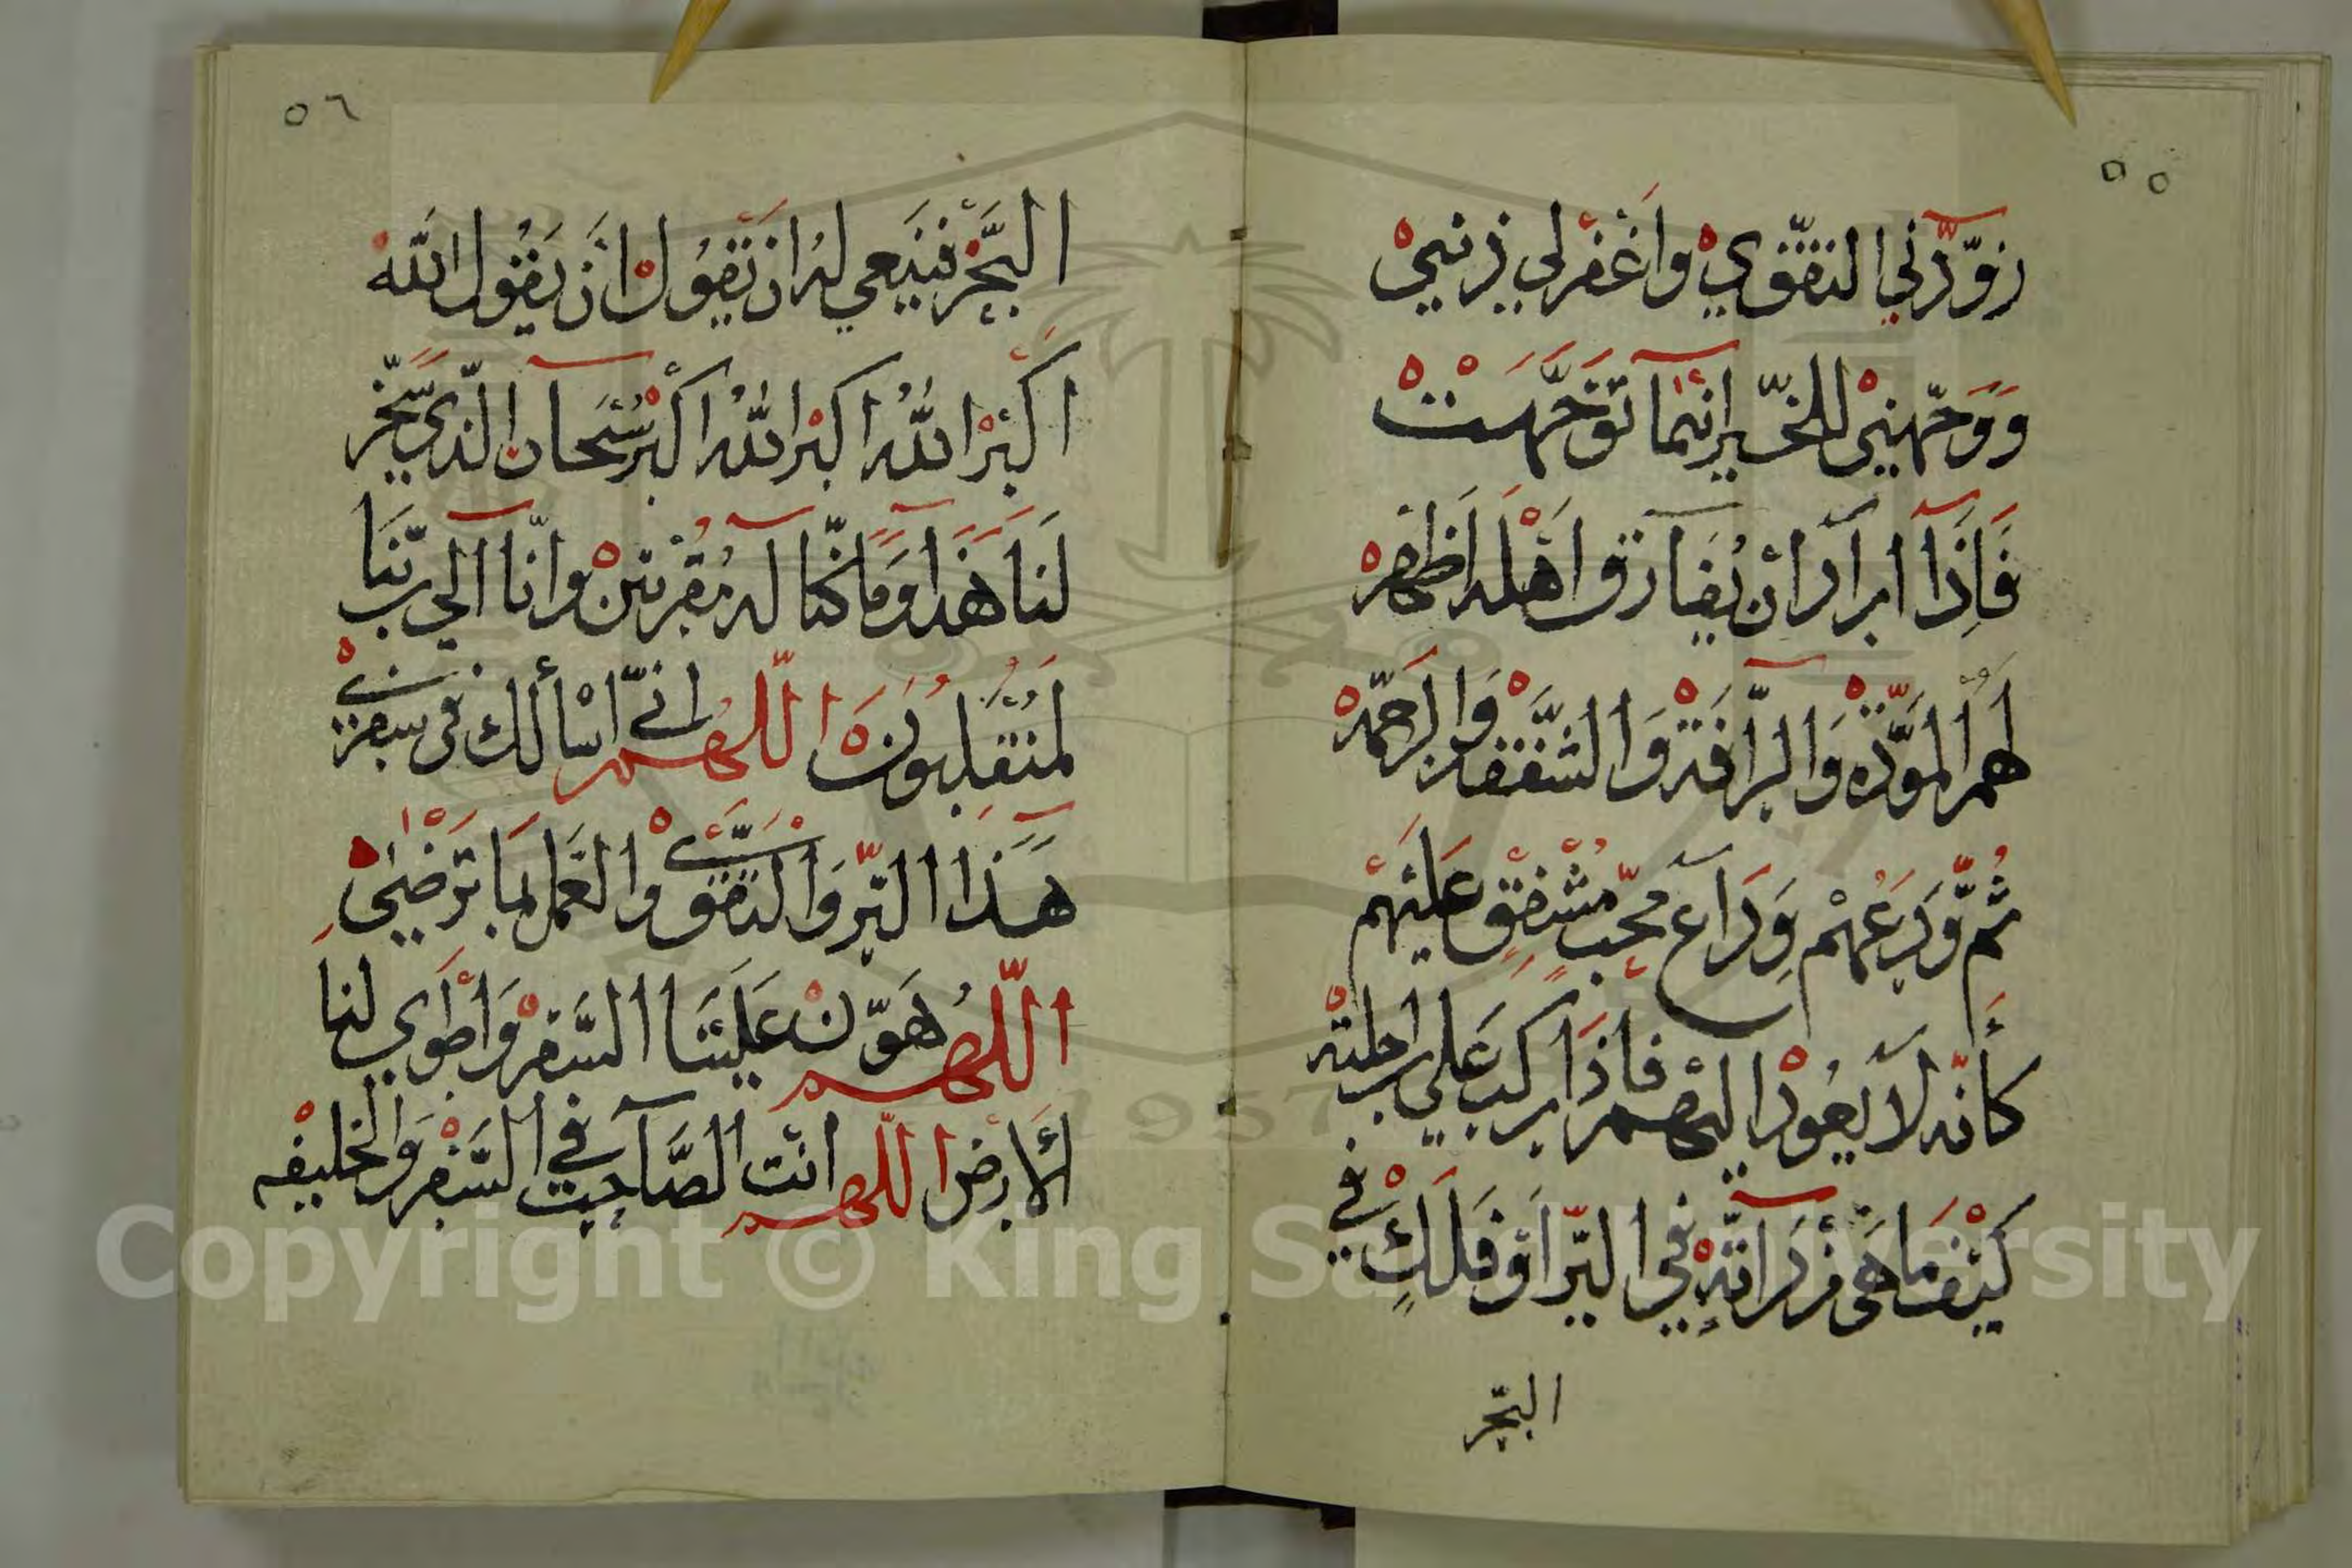 ٥٥
زوّدني التقوي واغفرلي ذنبي
ووجّهني للخير انّما توجّهت
فاذا اراد ان يفارق اهله اظهر
لهم المودّه والرافة والشفقة والرحمة
ثمّ ودعهم وداع محبّ مشفق عليهم
كأنّه لا يعود اليهم فاذا ركب علي راحلته
كيفما هي في البرّ او فلك في
البحر
٥٦
البحر فينبغي له ان تقول ان يقول الله
اكبر الله اكبر الله اكبر سبحان الذي سخّر
لنا هذا وما كنّا له مقرنين وانّا الي ربّنا
لمنقلبون اللهم انّي اسألك في سفري
هذا البرّ والتقوي والعمل بما ترضي
اللهم هوّن علينا السفر واطوي لنا
الارض اللهم انت الصاحب في السفر والخليفه
Copyright © King Saud University
1957